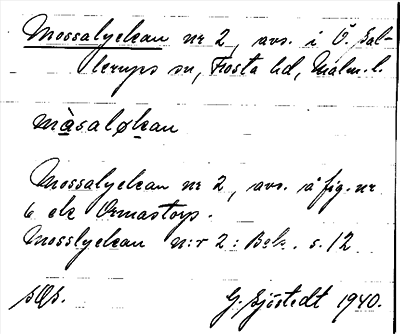 Mossalyckan nr 2, avs. i Ö. Sal-
lerups sn, Frosta hd, Malm. l.
màsaløkan
Mossalyckan nr 2, avs. å fig. nr
6 ek Ormastorp.
Mosslyckan n:r 2: Besk. s. 12
G. Sjöstedt 1940.